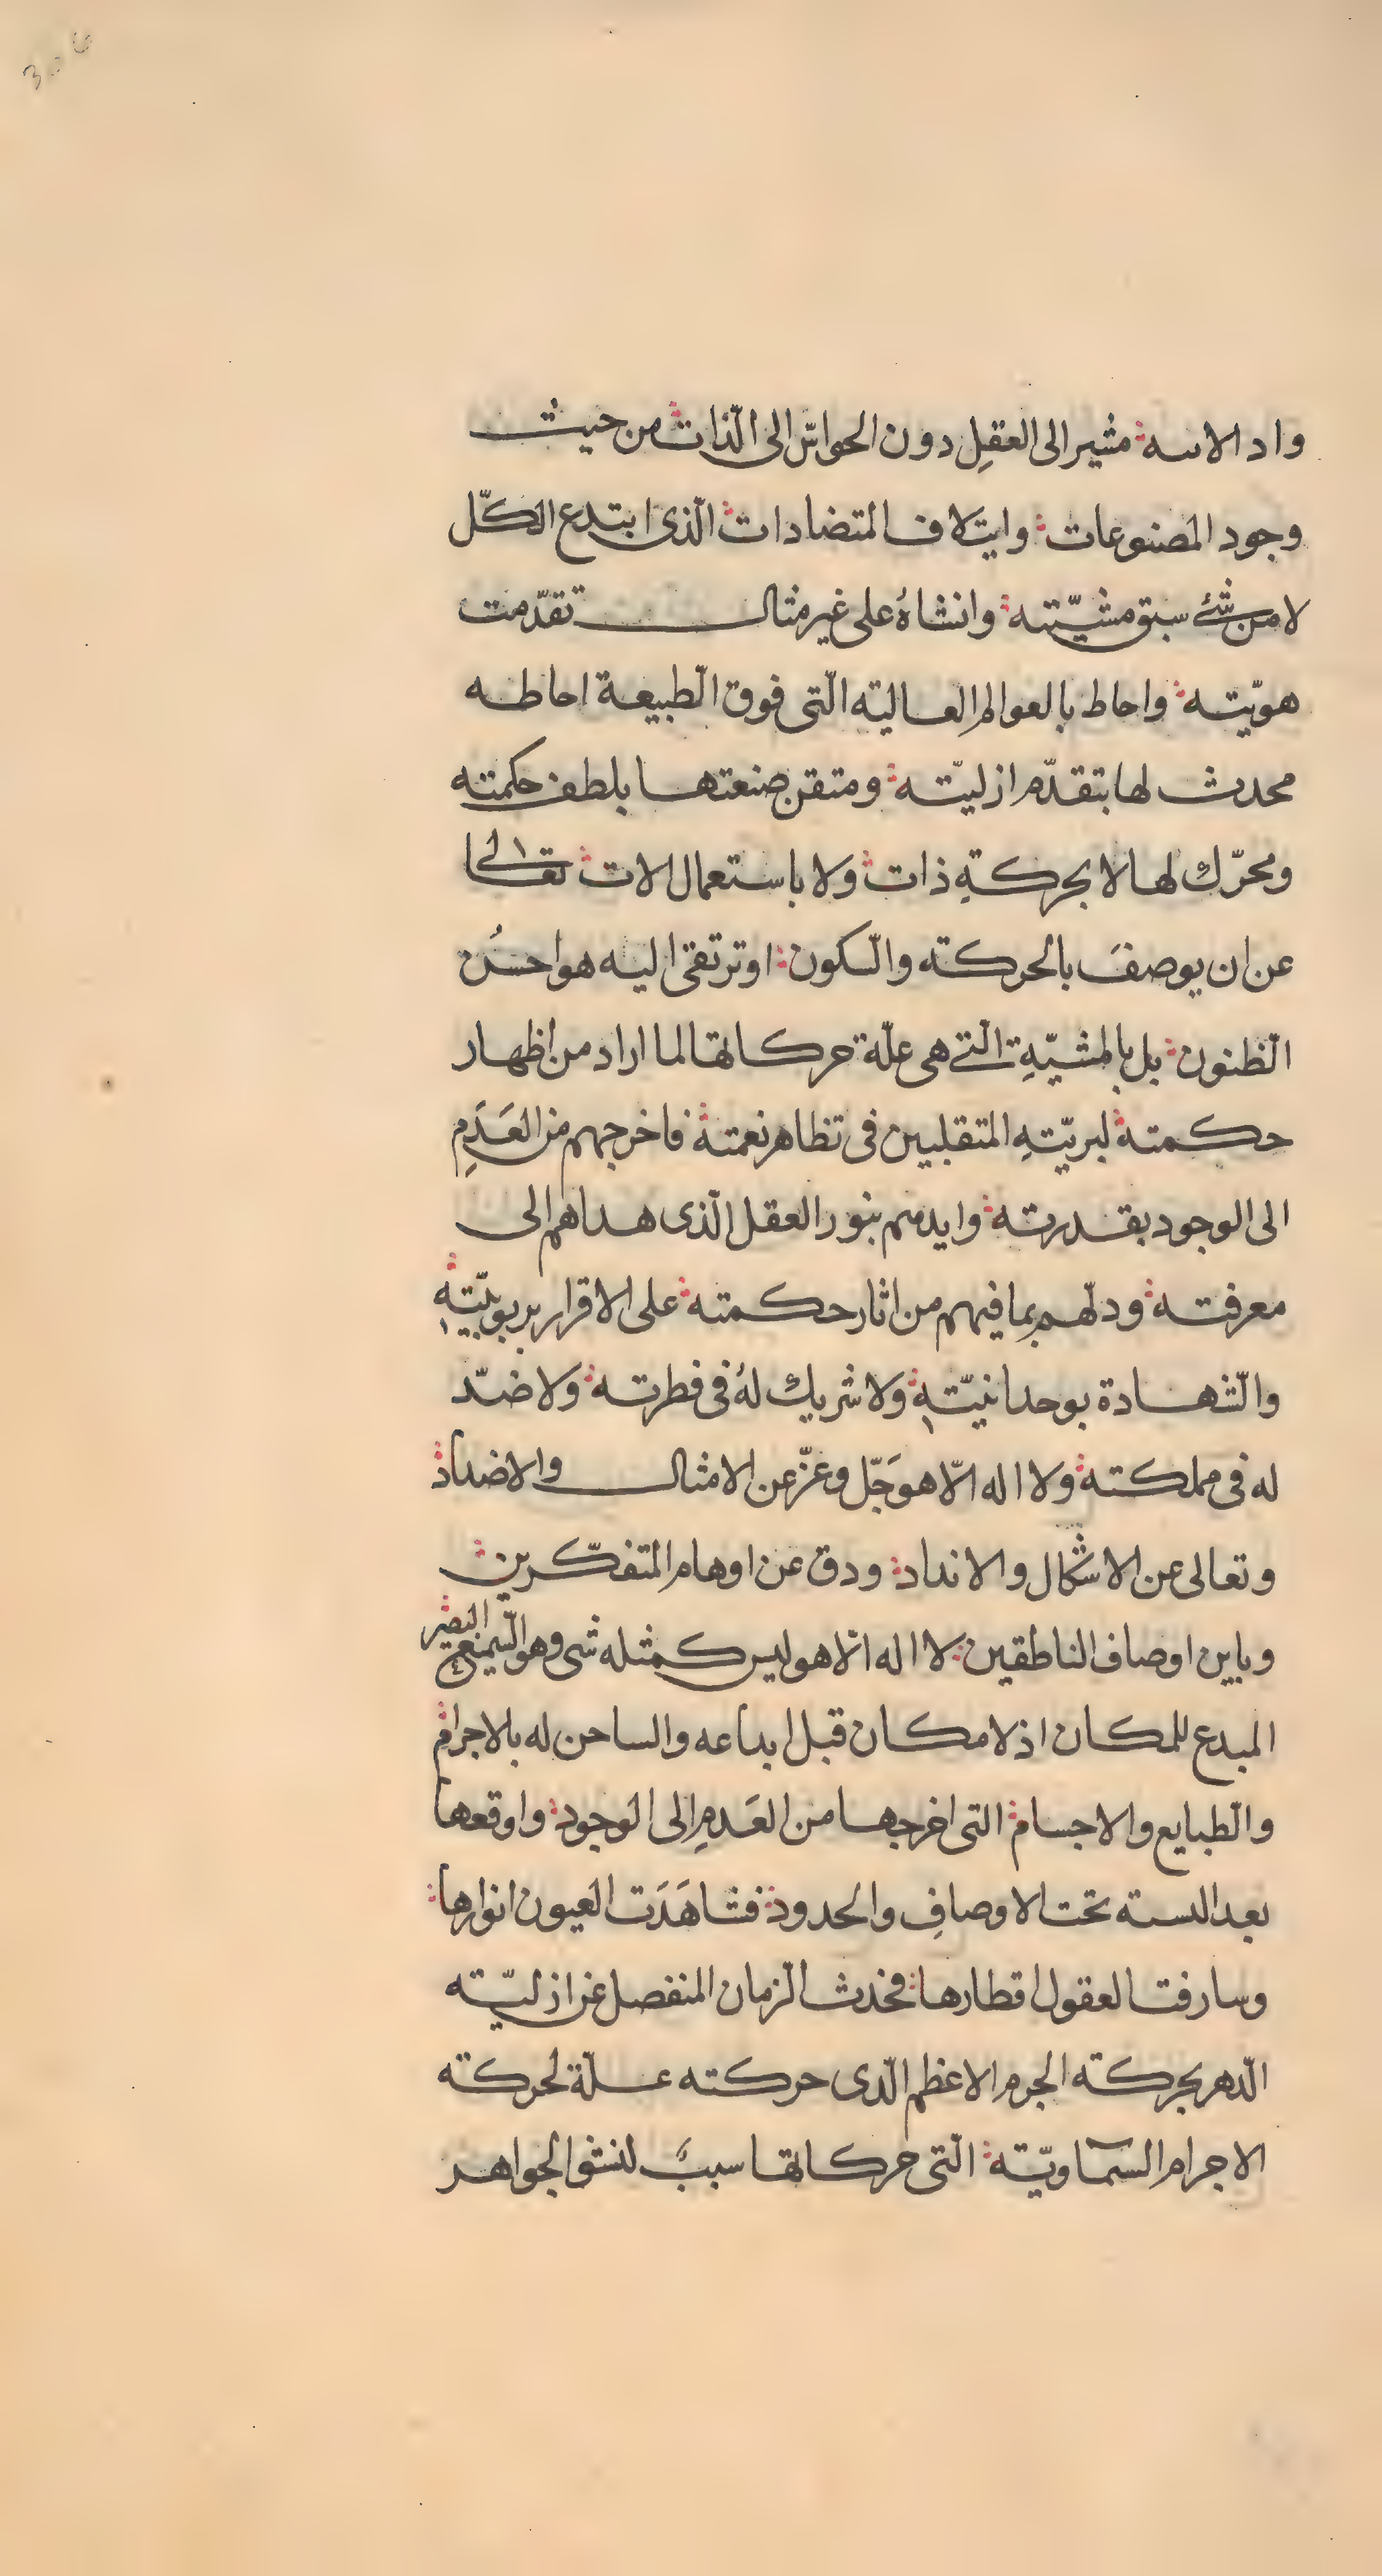 واد الاىىه مشير الى العقلِ دون الحواسّ الى الّذات من حيث
وجود المصنوعات وايتلاف المتضادات الّذى ابتدع الكّل
لا من شئ سبق مشيّته وانشاهُ على غير مثال تقدّمت
هويّته واحاط بالعوالم العالية الّتى فوق الّطبيعة احاطه
محدث لها بتقدّم ازليّته ومتقن صنعتها بلطف حكمته
ومحرّك لها لا بحركةِ ذات ولا باستعمال الات تعالى
عن ان يوصفَ بالحركة والسّكون اوترتقى اليه هواحسُن
الّظنون بل بالمشيّةِ الّتى هى علّة حركاتها لما اراد من اظهار
حكمته لبريّتهِ المتقلبين فى تظاهر نعمته فاخرجهم من العَدَمِ
الى الوجود بقدرته وايدهم بنور العقل الّذى هداهم الى
معرفته ودلّهم بما فيهم من اثار حكمته على الاقرار بربوبيّتهِ
والشّهادة بوحدانيّتهِ ولا شريك لهُ فى فطرته ولا ضدّ
له فى مملكته ولا اله الّا هو جَلّ وعزّ عن الامثال والاضداد
وتعالى عن الاشكال والانداد ودق عن اوهام المتفكّرين
وباين اوصاف الناطقين لا اله الّا هو ليس كمثله شى وهو السّميع البصير
المبدع للمكان اذ لا مكان قبل ابداعه والساحن له بالاجرام
والّطبايع والاجسام التى اخرجها من العَدمِ الى الوجود واوقعها
بعد اللىىىه تحت الاوصافِ والحدود فشاهَدَت العيون انوارها
وسارفت العقول اقطارها فحدث الّزمان المنفصل عن ازليّته
الّدهر بحركة الجرم الاعظم الّدى حركته علّة لحركة
الاجرام السماويّة الّتى حركاتها سببٌ لنشو الجواهر